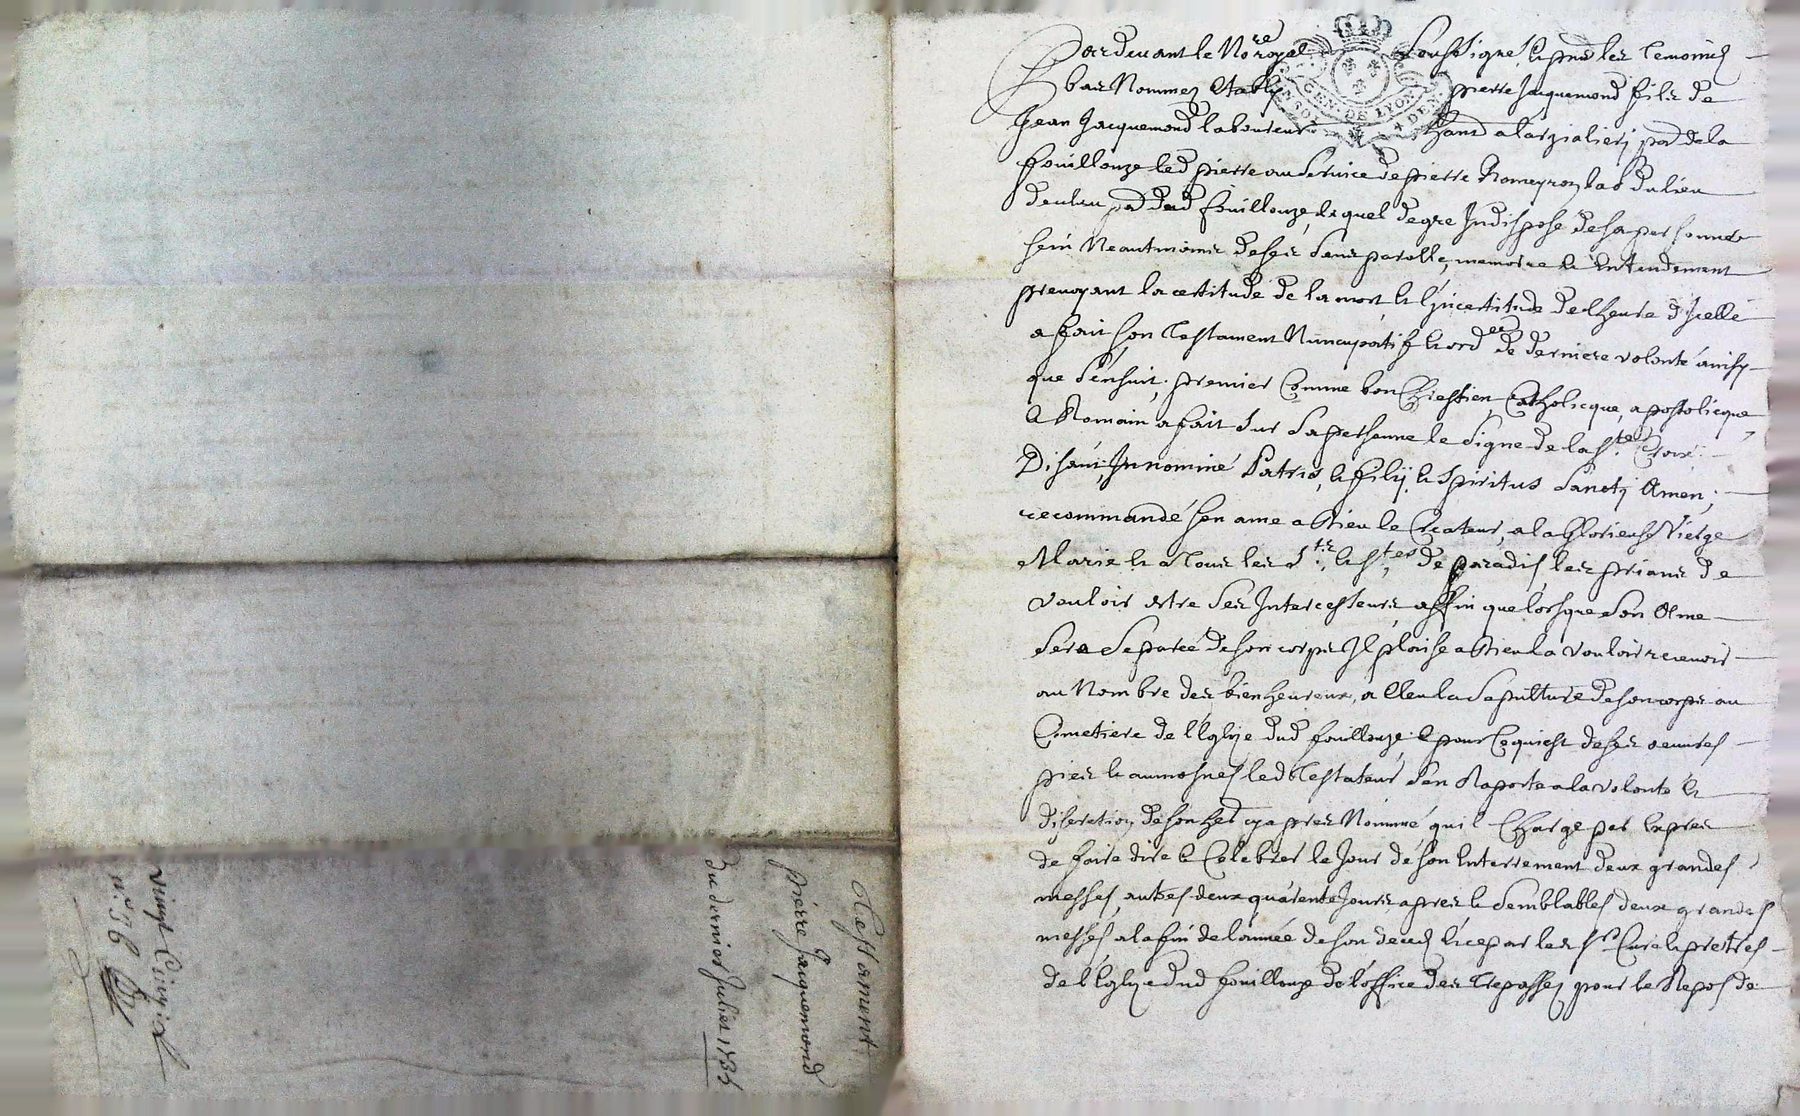 Testament
pierre Jacquemond
Du dernier Juliet
vingt
n.º 56
Pardevant le No.re royal soussigné, & pns les temoins
bas Nommez Etably pierre Jacquemond fils de
Jean Jacquemond laboureur hant a parr de la
fouillouze led pierre au Service de pierre Romeyron du lieu
par dud fouillouze, lequel de gre Indisposé de sa personne
sein Neantmoins de ses sens parolle, memoire & Entendement
prevoyant la certitude de la mort & lincertitude de lheure dicelle
a fait son Testament Nuncupatif & ord.ce de derniere volonté ainsy
que s'ensuit, premier Comme bon Chrestien, Catholicque, apostolicque
& Romain a fait sur sa personne le signe de la S.te Croix
Disant, In nomine Patris, & filij, & Spiritus Sancti Amen;
recommandé son ame a Dieu le Createur, a la Glorieuse Vierge
Marie & a Tous les S.ts, & S.tes de paradis, les priant de
vouloir estre ses Intercesseurs affin que lorsque son Ame
sera Separée de son corps Il plaise a Dieu la vouloir recevoir
au Nombre des bienheureux, a Eleu la Sepulture de son corps au
Cimetiere de l'Eglize dud fouillouze, & pour ce quiest de ses oeuvres
pies & aumosnes led Testateur s'en Raporte a la volonté &
discretion de son her cyapres Nommé quil Charge par Expres
de faire dire & Celebrer le Jour de son Enterrement deux grandes
messes, autres deux quarente Jours apres & Semblables deux grandes
messes a la fin de lannée de son deceds & ce par les Srs Curé & pretres
de l'Eglize dud fouillouze de l'office des Trepassez pour le Repos de
GEN. DE LYON